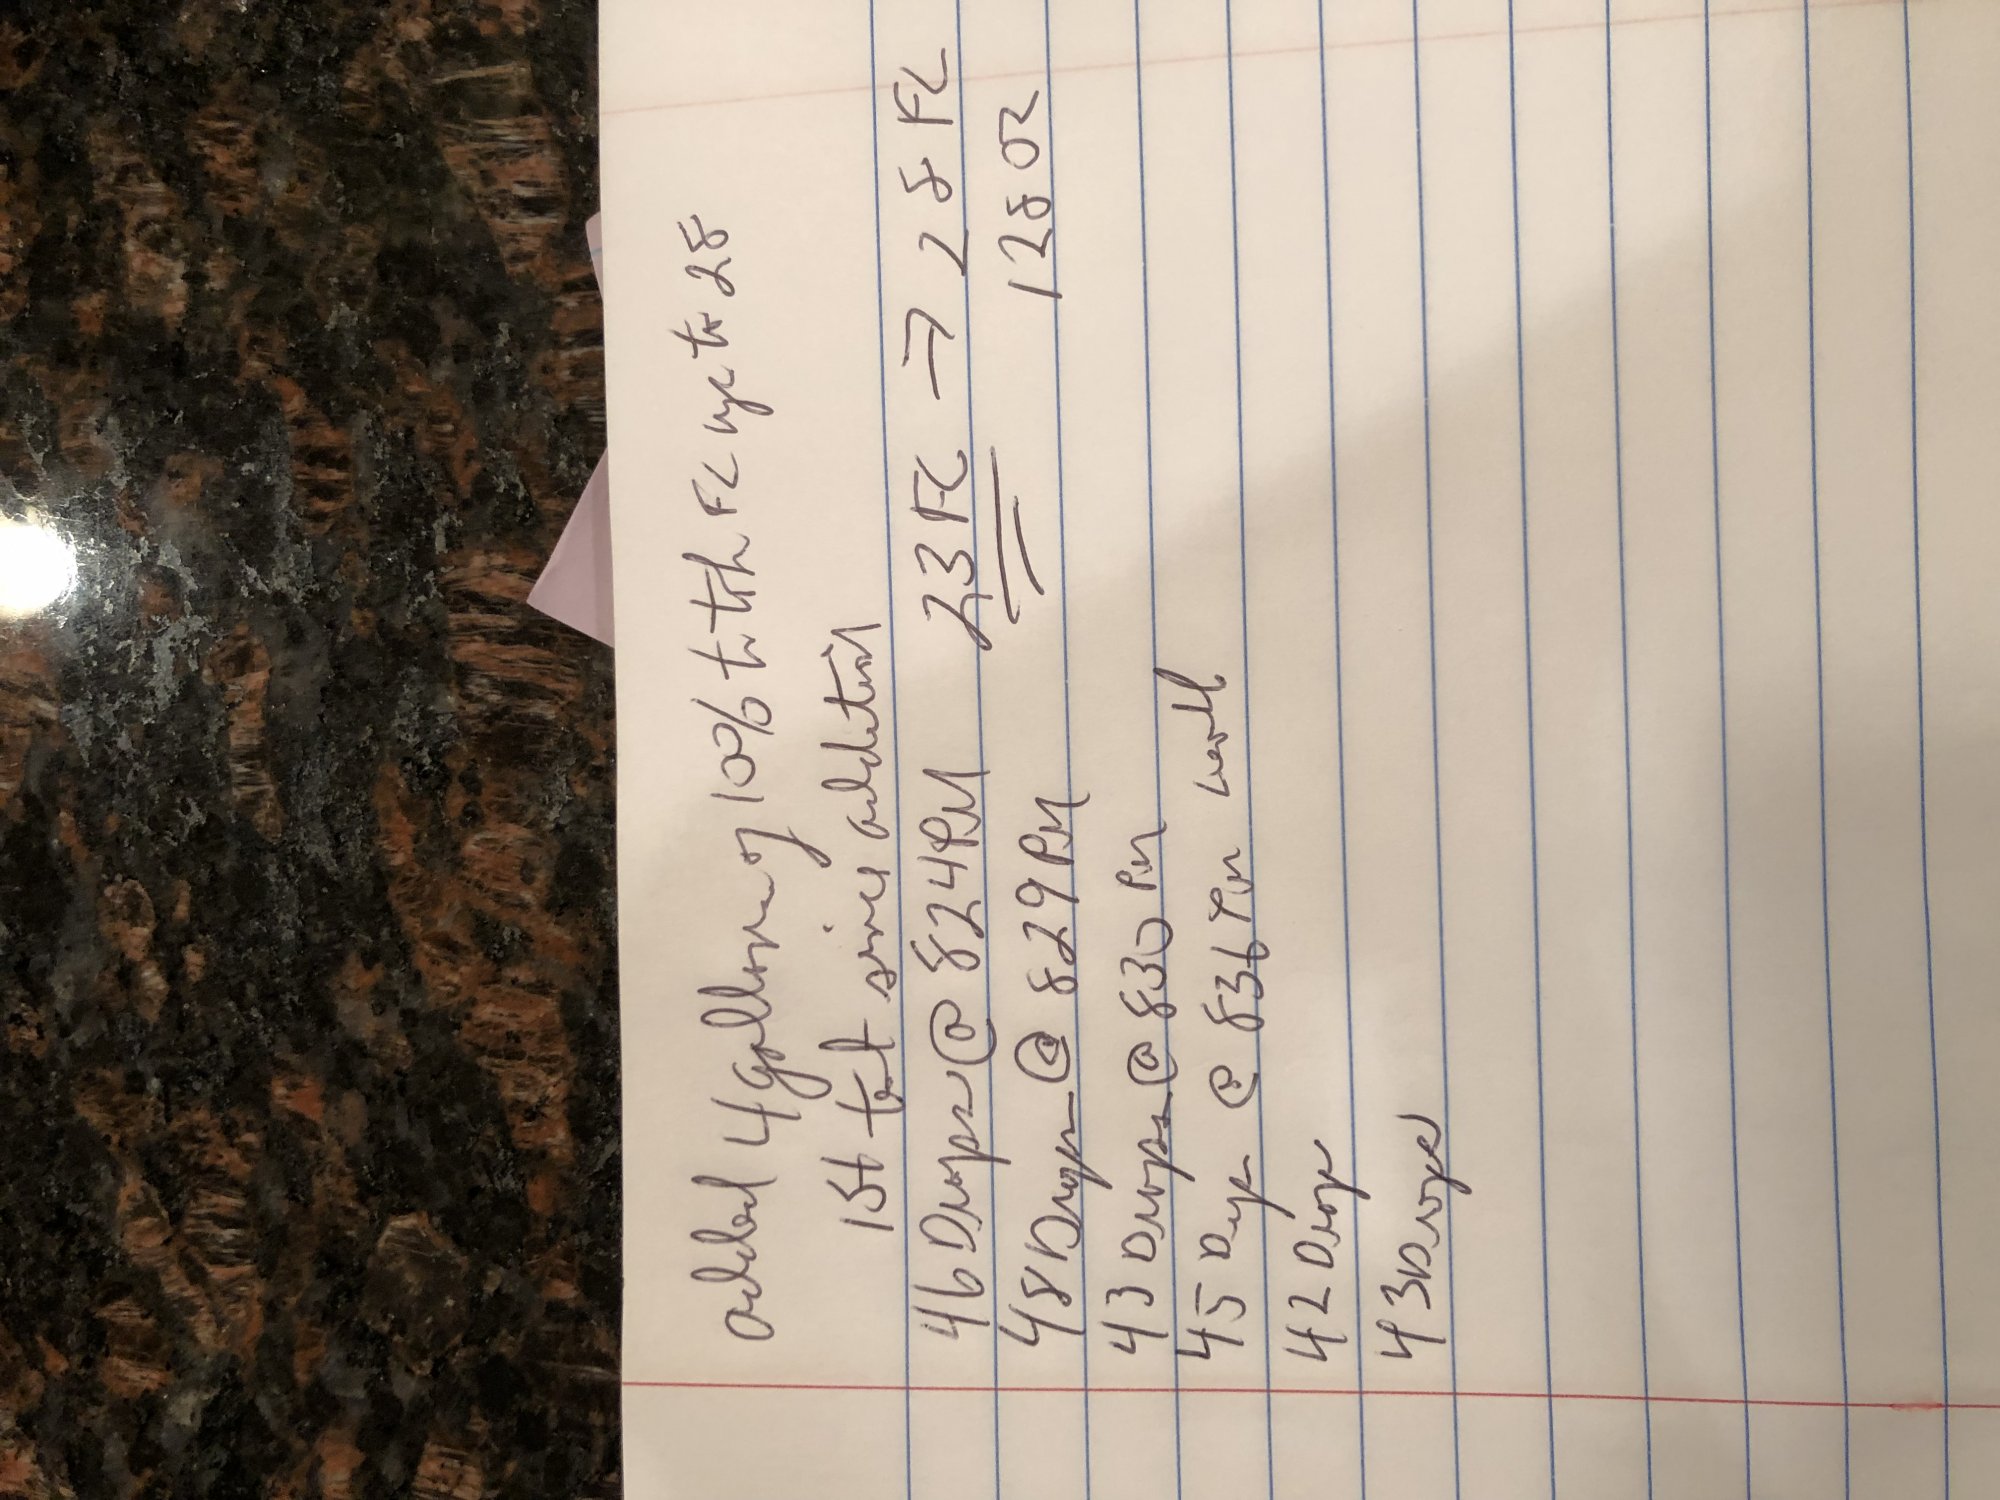 added 4 gallons of 10% to tth FC up to 28
1st test since addition
46 Drops @ 824PM 23 FC → 28 FC
48 Drops @ 829PM 128oz
43 Drops @ 830 PM
45 Dps @ 836 PM
42 Drops
43 Drops